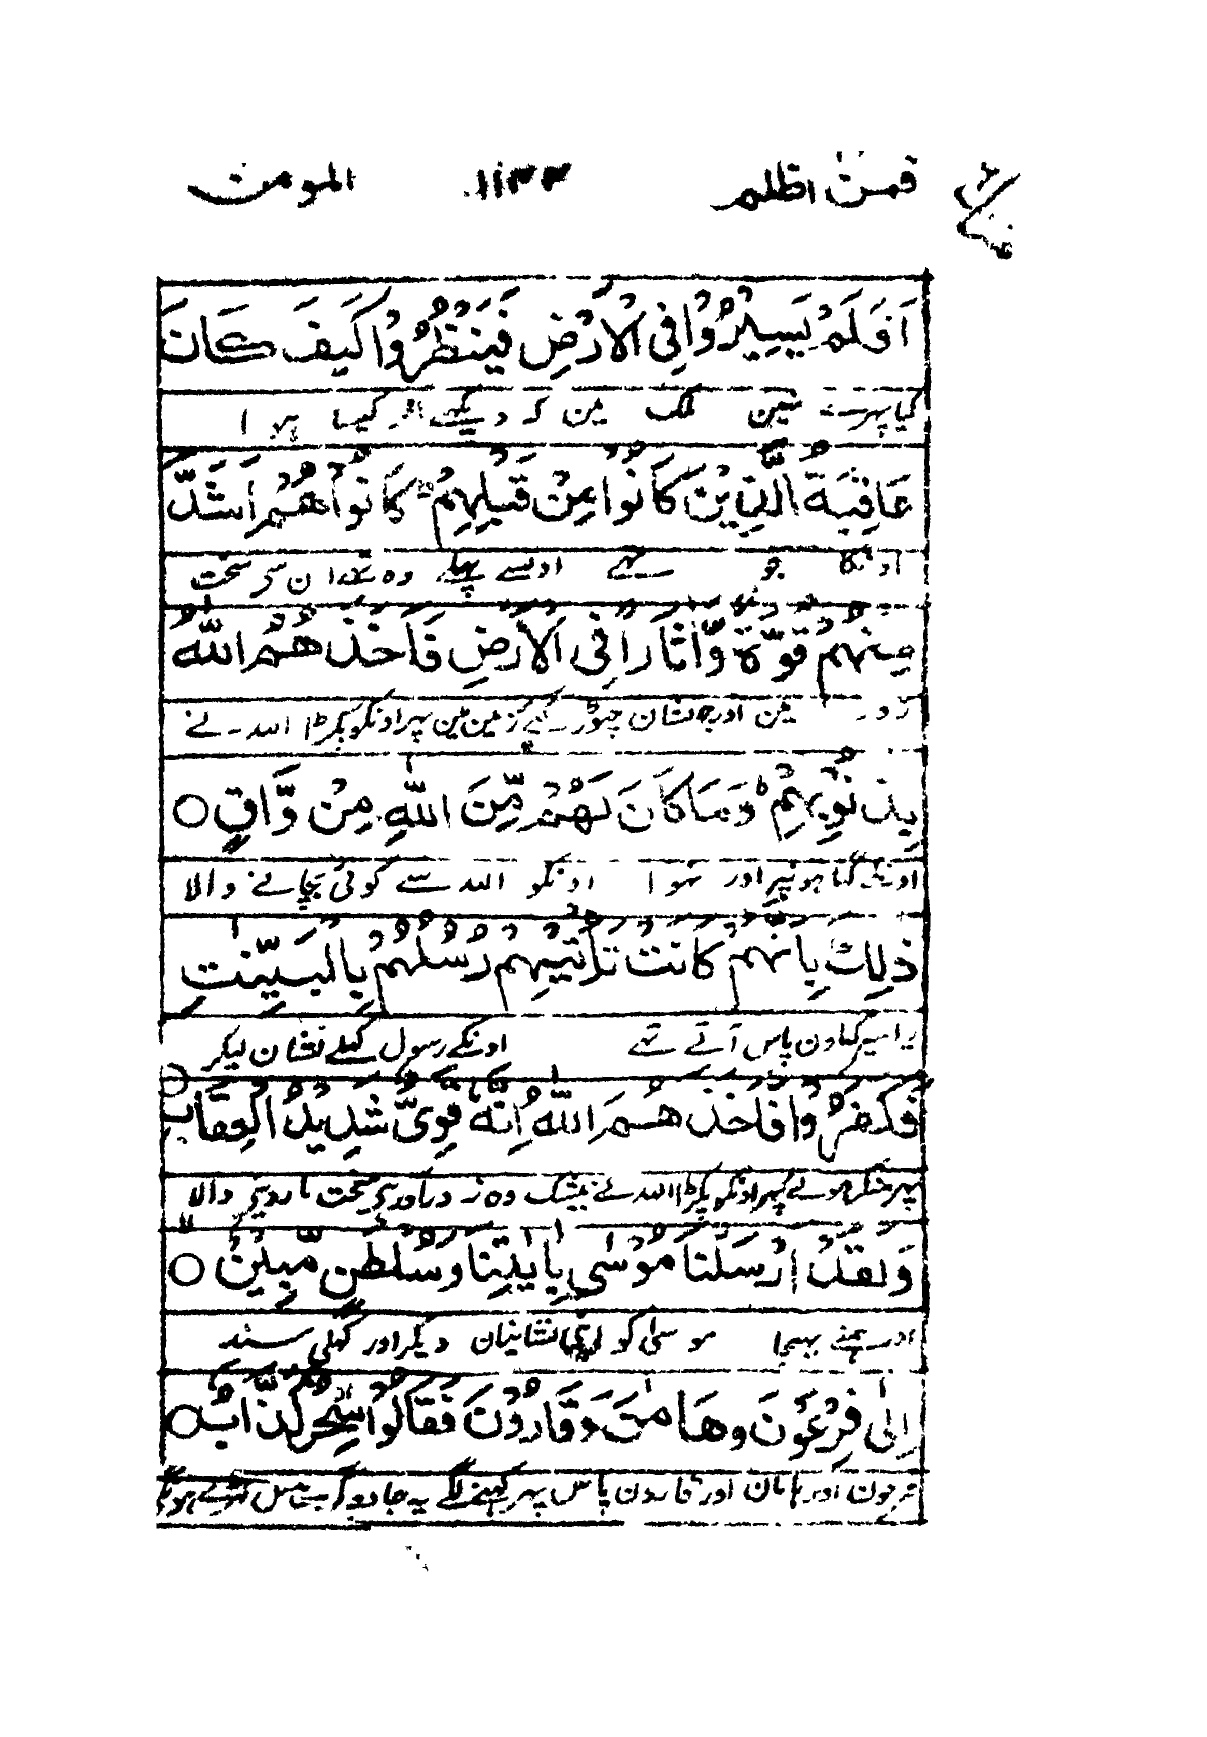 فمن اظلم ۱۱۳۳ المومن
اَفَلَمْ يَسِيْرُوْا فِى الْاَرْضِ فَيَنْظُرُوْا كَيْفَ كَانَ
کیا پہرے نہین ملک مین کہ دیکہتے کیسا ہوا
عَاقِبَةُ الَّذِيْنَ كَانُوْا مِنْ قَبْلِهِمْ كَانُوْا هُمْ اَشَدَّ
اونکا جو تہے اونسے پہلے وہ تہے ان سے سخت
مِنْهُمْ قُوَّةً وَّاٰثَارًا فِى الْاَرْضِ فَاَخَذَهُمُ اللّٰهُ
زور مین اور جو نشان چہوڑ گئے زمین مین پہر اونکو پکڑا اللہ نے
بِذُنُوْبِهِمْ وَمَا كَانَ لَهُمْ مِّنَ اللّٰهِ مِنْ وَّاقٍ ○
اونکے گناہونپر اور نہوا اونکو اللہ سے کوئی بچانے والا
ذٰلِكَ بِاَنَّهُمْ كَانَتْ تَّاْتِيْهِمْ رُسُلُهُمْ بِالْبَيِّنٰتِ
یہ اسپر کہ اون پاس آتے تہے اونکے رسول کہلے نشان لیکر
فَكَفَرُوْا فَاَخَذَهُمُ اللّٰهُ اِنَّهٗ قَوِىٌّ شَدِيْدُ الْعِقَابِ ○
پہر منکر ہوئے پہر اونکو پکڑا اللہ نے بیشک وہ زورآور ہے سخت مار دینے والا
وَلَقَدْ اَرْسَلْنَا مُوْسٰى بِاٰيٰتِنَا وَسُلْطٰنٍ مُّبِيْنٍ ○
اور ہمنے بہیجا موسیٰ کو اپنی نشانیان دیکر اور کہلی سند
اِلٰى فِرْعَوْنَ وَهَامٰنَ وَقَارُوْنَ فَقَالُوْا سٰحِرٌ كَذَّابٌ ○
فرعون اور ہامان اور قارون پاس پہر کہنے لگے یہ جادوگر ہے